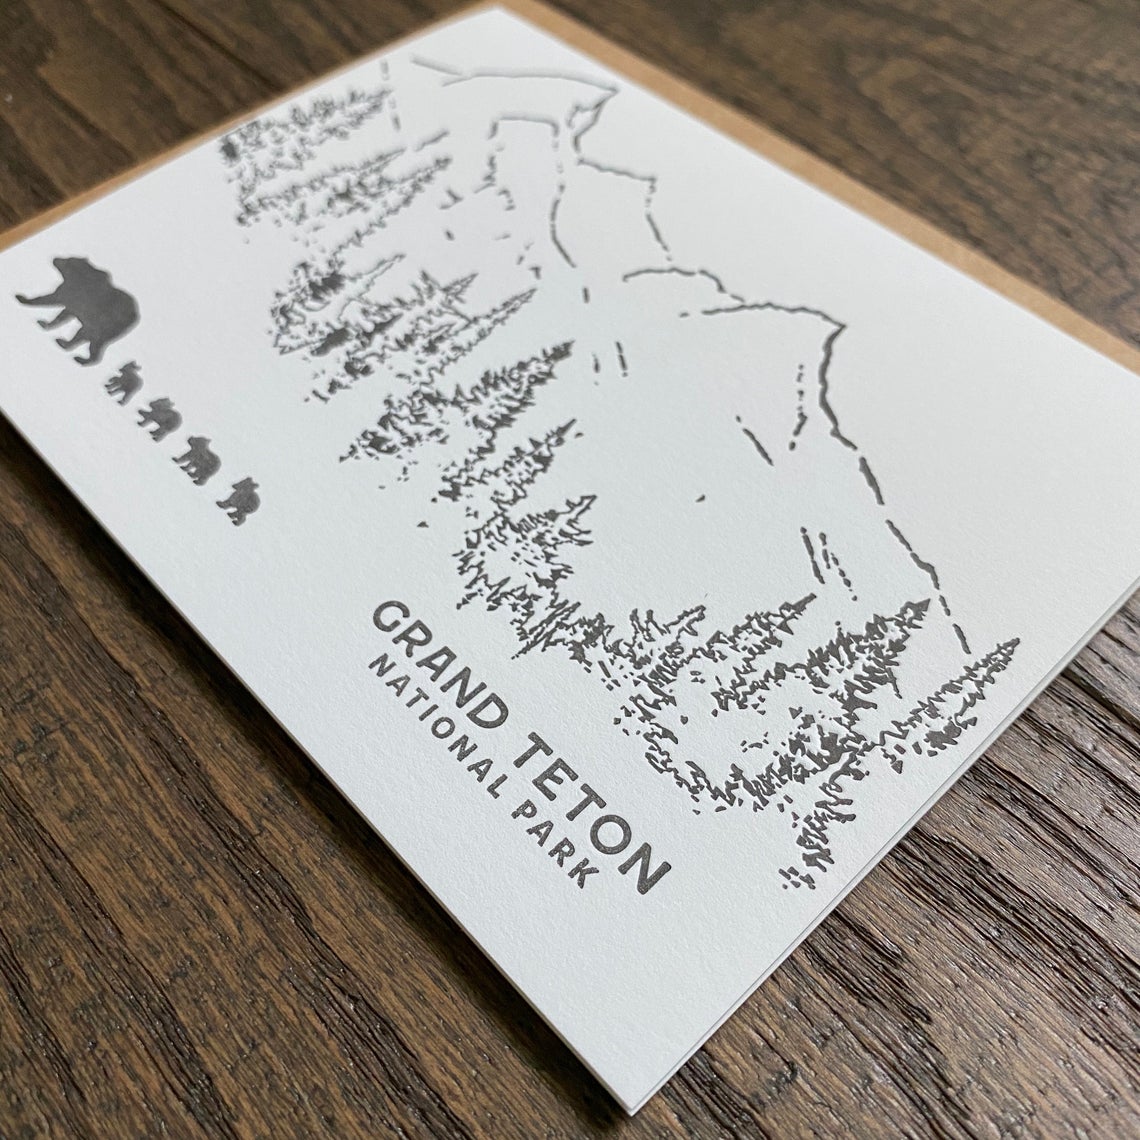 GRAND TETON
NATIONAL PARK